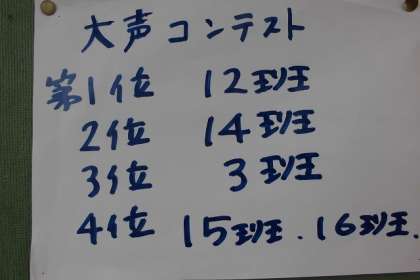 大声コンテスト
第1位 12班
2位 14班
3位 3班
4位 15班.16班.